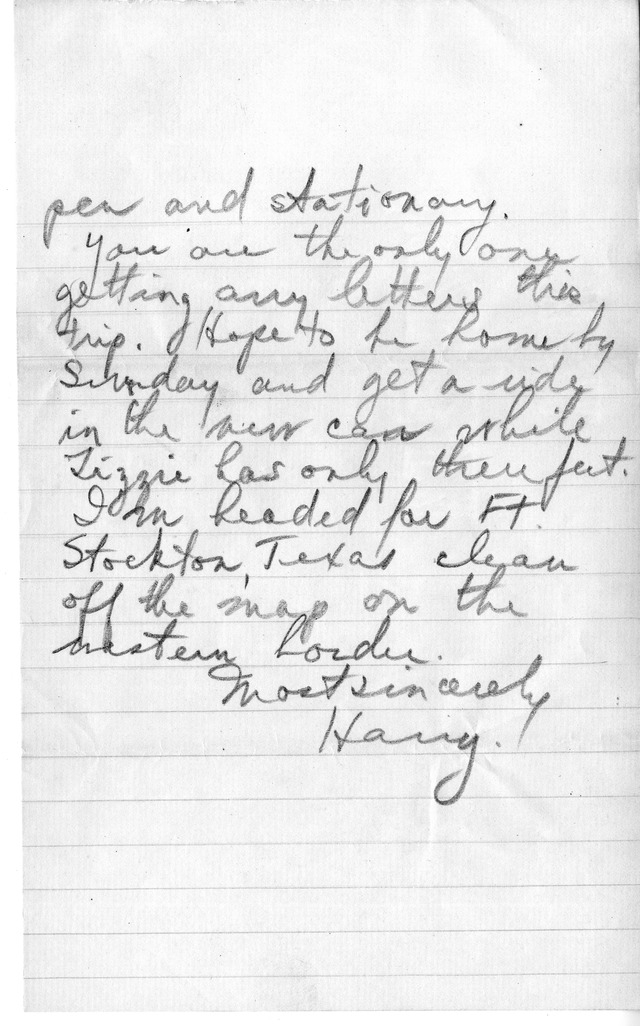 pen and stationary.
You are the only one
getting any letters this
trip. Hope to be home by
Sunday and get a ride
in the new car while
Lizzie has only three feet.
I'm headed for Ft.
Stockton, Texas clean
off the map on the
western border.
Most sincerely
Harry.